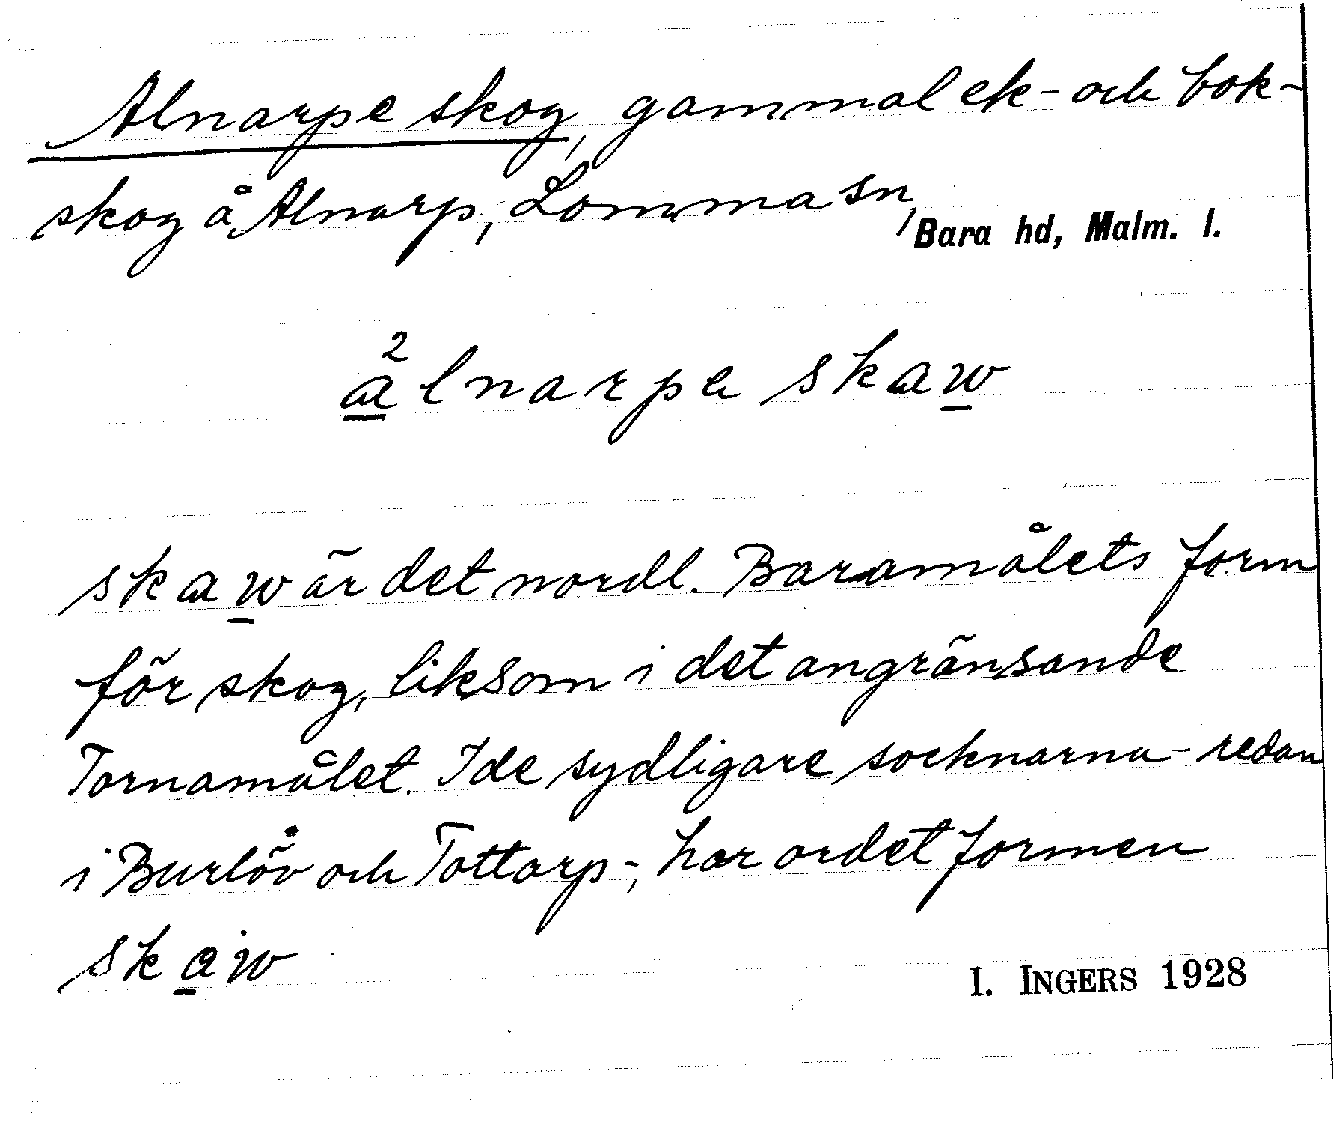 Alnarpe skog, gammal ek- och bok-
skog å Alnarp, Lomma sn,
Bara hd, Malm. l.
²alnarpe skaw
skaw är det nordl. Baramålets form
för skog, liksom i det angränsande
Tornamålet. I de sydligare socknarna - redan
i Burlöv och Tottarp -, har ordet formen
skaw
I. INGERS 1928